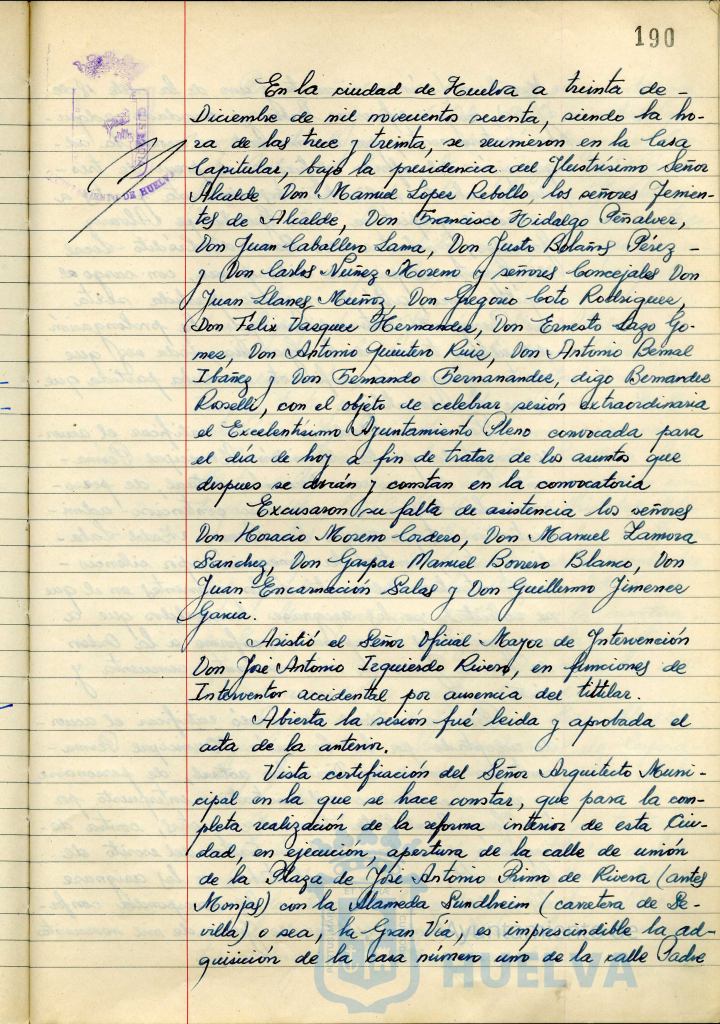 190
En la ciudad de Huelva a treinta de -
Diciembre de mil novecientos sesenta, siendo la ho-
ra de las trece y treinta, se reunieron en la Casa
Capitular, bajo la presidencia del Ilustrísimo Señor
Alcalde Don Manuel Lopez Rebollo, los señores Tenien-
tes de Alcalde, Don Francisco Hidalgo Peñalver,
Don Juan Caballero Lama, Don Justo Bolaños Pérez -
y Don Carlos Núñez Moreno y señores Concejales Don
Juan Llanes Muñoz, Don Gregorio Coto Rodriguez,
Don Felix Vazquez Hernandez, Don Ernesto Lazo Go-
mez, Don Antonio Quintero Ruiz, Don Antonio Bernal
Ibáñez y Don Fernando Fernanandez, digo Bernandez
Roselli, con el objeto de celebrar sesión extraordinaria
el Excelentísimo Ayuntamiento Pleno convocada para
el día de hoy a fin de tratar de los asuntos que
despues se dirán y constan en la convocatoria
Excusaron su falta de asistencia los señores
Don Horacio Moreno Cordero, Don Manuel Zamora
Sanchez, Don Gaspar Manuel Borrero Blanco, Don
Juan Encarnación Salas y Don Guillermo Jimenez
Garcia.
Asistió el Señor Oficial Mayor de Intervención
Don José Antonio Izquierdo Rivero, en funciones de
Interventor accidental por ausencia del titular.
Abierta la sesión fué leida y aprobada el
acta de la anterior.
Vista certificación del Señor Arquitecto Muni-
cipal en la que se hace constar, que para la com-
pleta realización de la reforma interior de esta Ciu-
dad, en ejecución, apertura de la calle de unión
de la Plaza de José Antonio Primo de Rivera (antes
Monjas) con la Alameda Sundheim (carretera de Se-
villa) o sea, la Gran Vía, es imprescindible la ad-
quisición de la casa número uno de la calle Padre
DE HUELVA
HUELVA